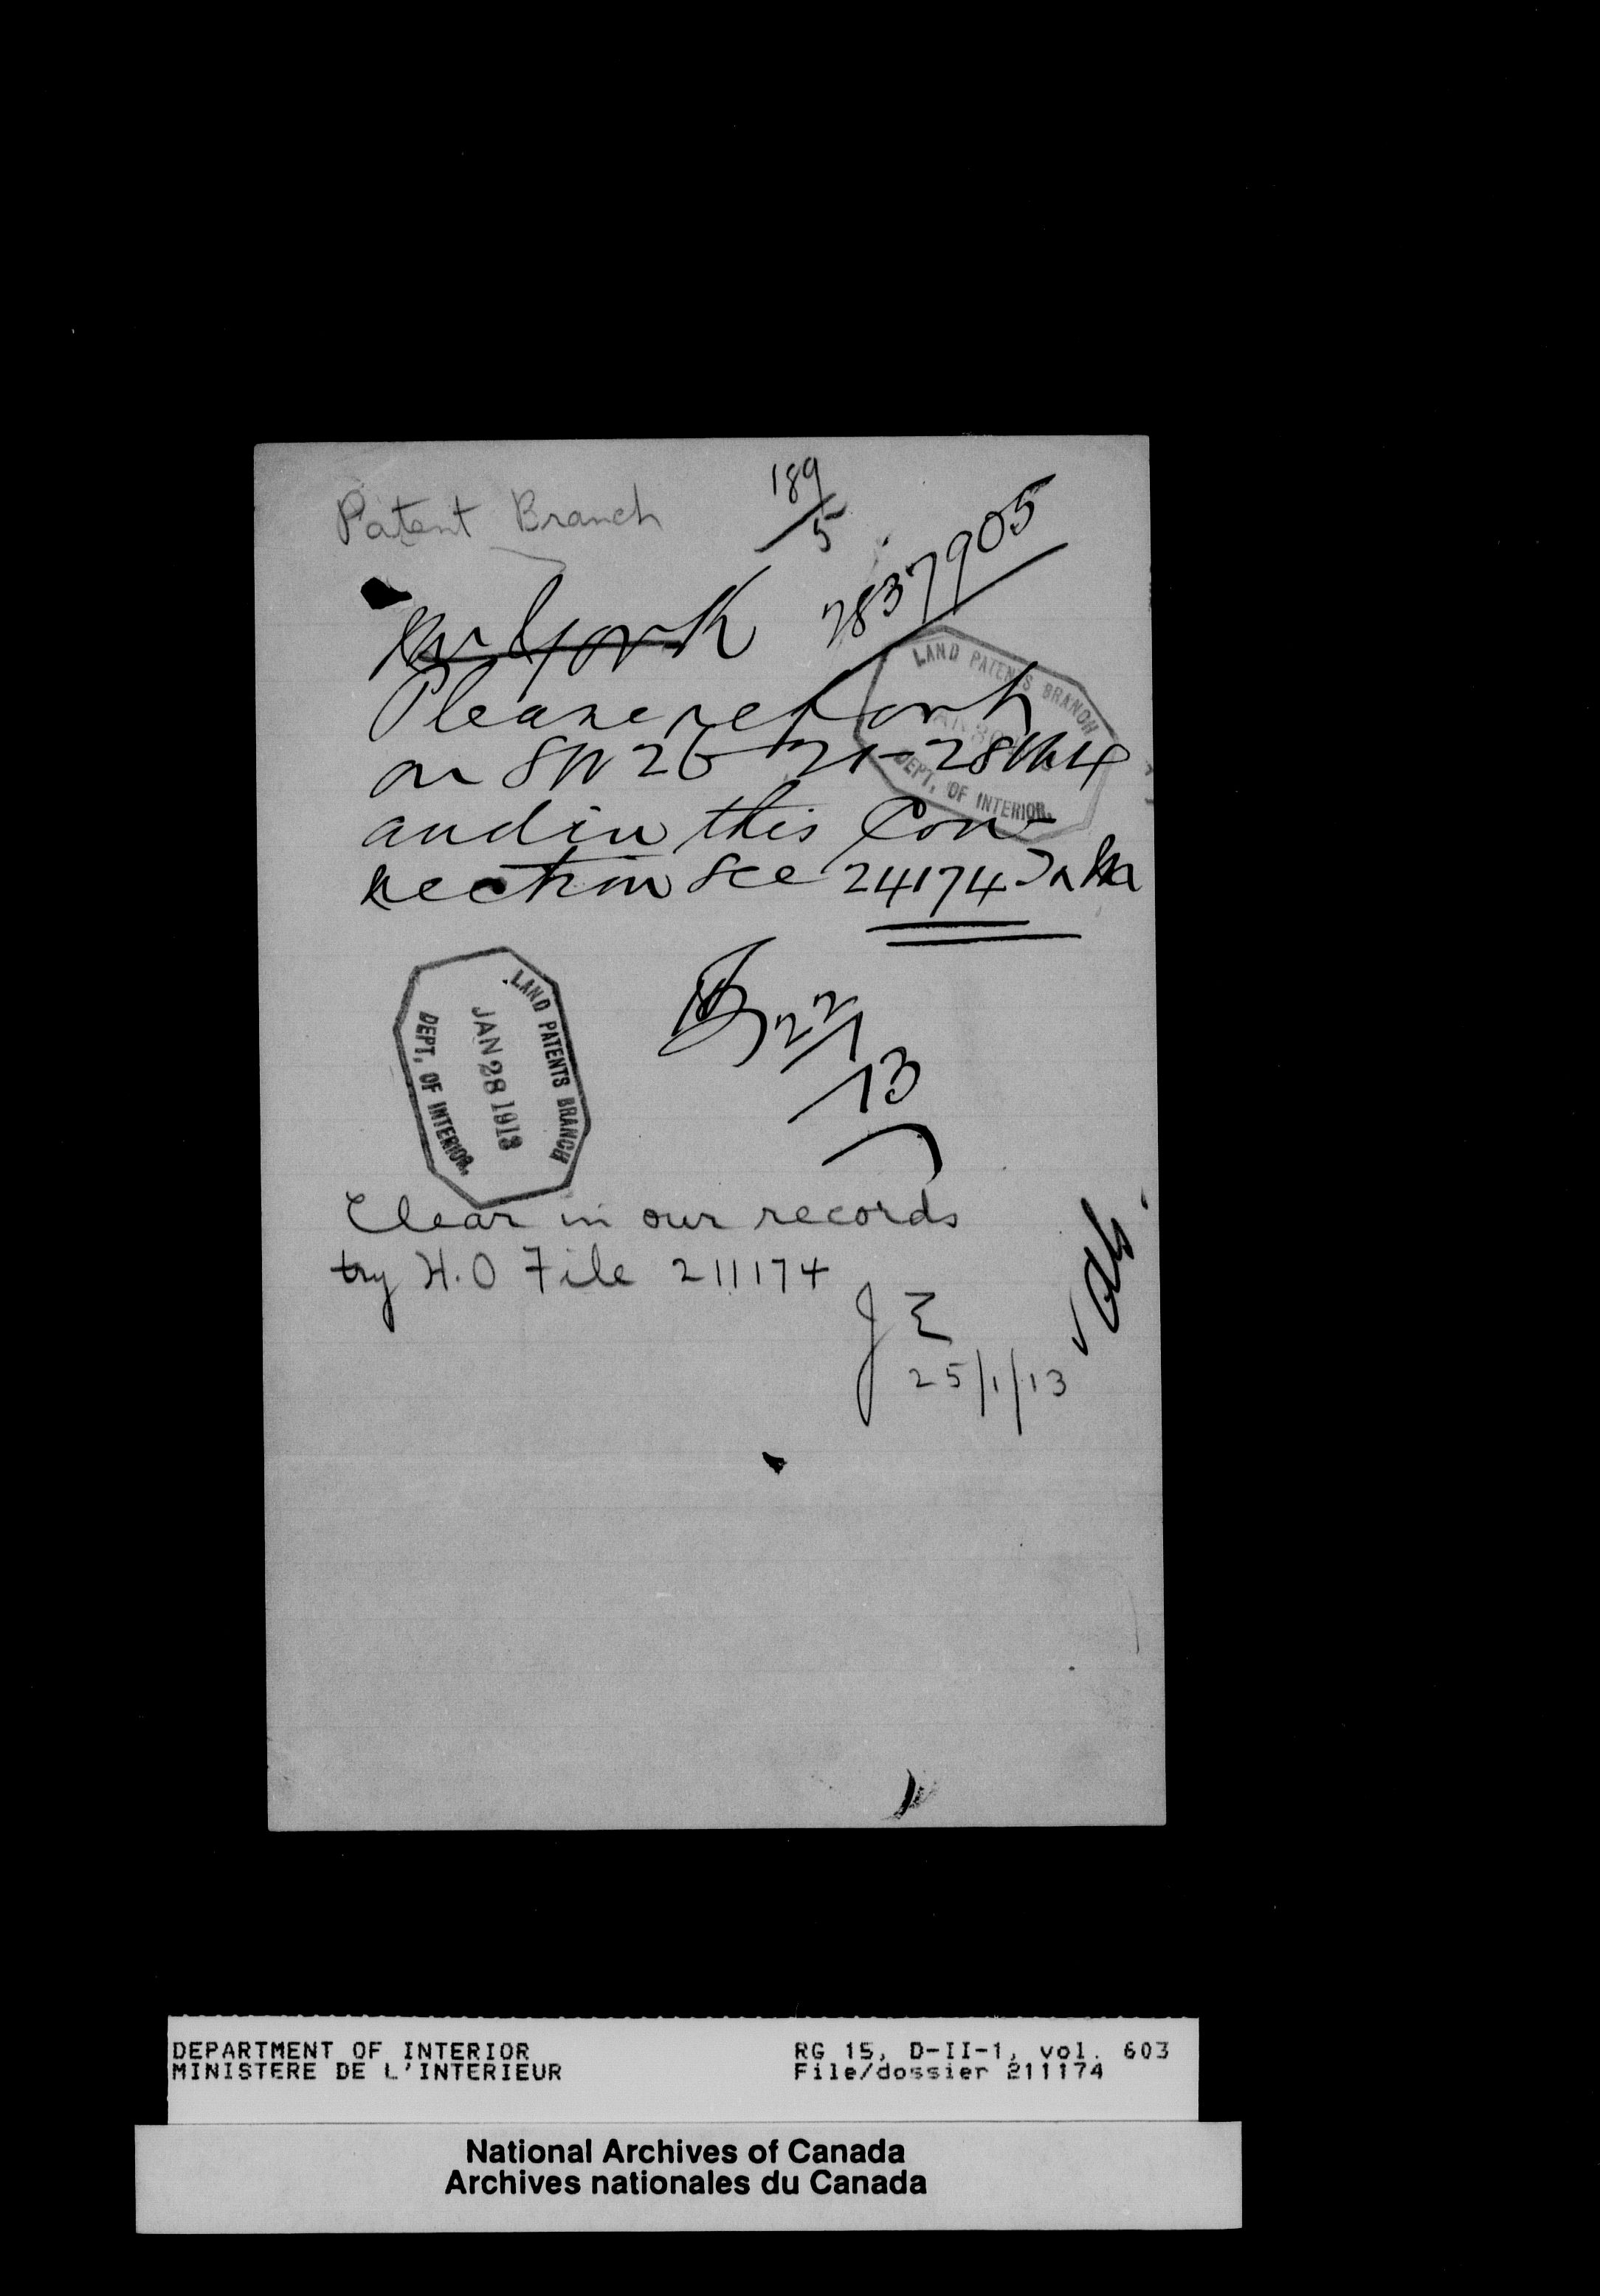 Patent Branch
189/5
2837905
Mr York
Please report
on SW 26-21-28 W4
and in this Con-
nection see 24174
LAND PATENTS BRANCH
DEPT. OF INTERIOR.
22/1/13
LAND PATENTS BRANCH
JAN 28 1913
DEPT. OF INTERIOR.
Clear in our records
try H.O File 211174
J E
25/1/13
DEPARTMENT OF INTERIOR
MINISTERE DE L'INTERIEUR
RG 15, D-II-1, vol. 603
File/dossier 211174
National Archives of Canada
Archives nationales du Canada